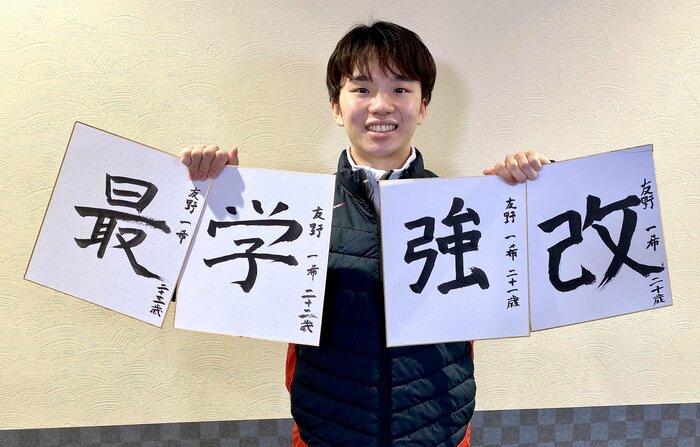 最
友野 一希
二十三歳
学
友野 一希 二十二歳
強
友野 一希 二十一歳
改
友野 一希 二十歳